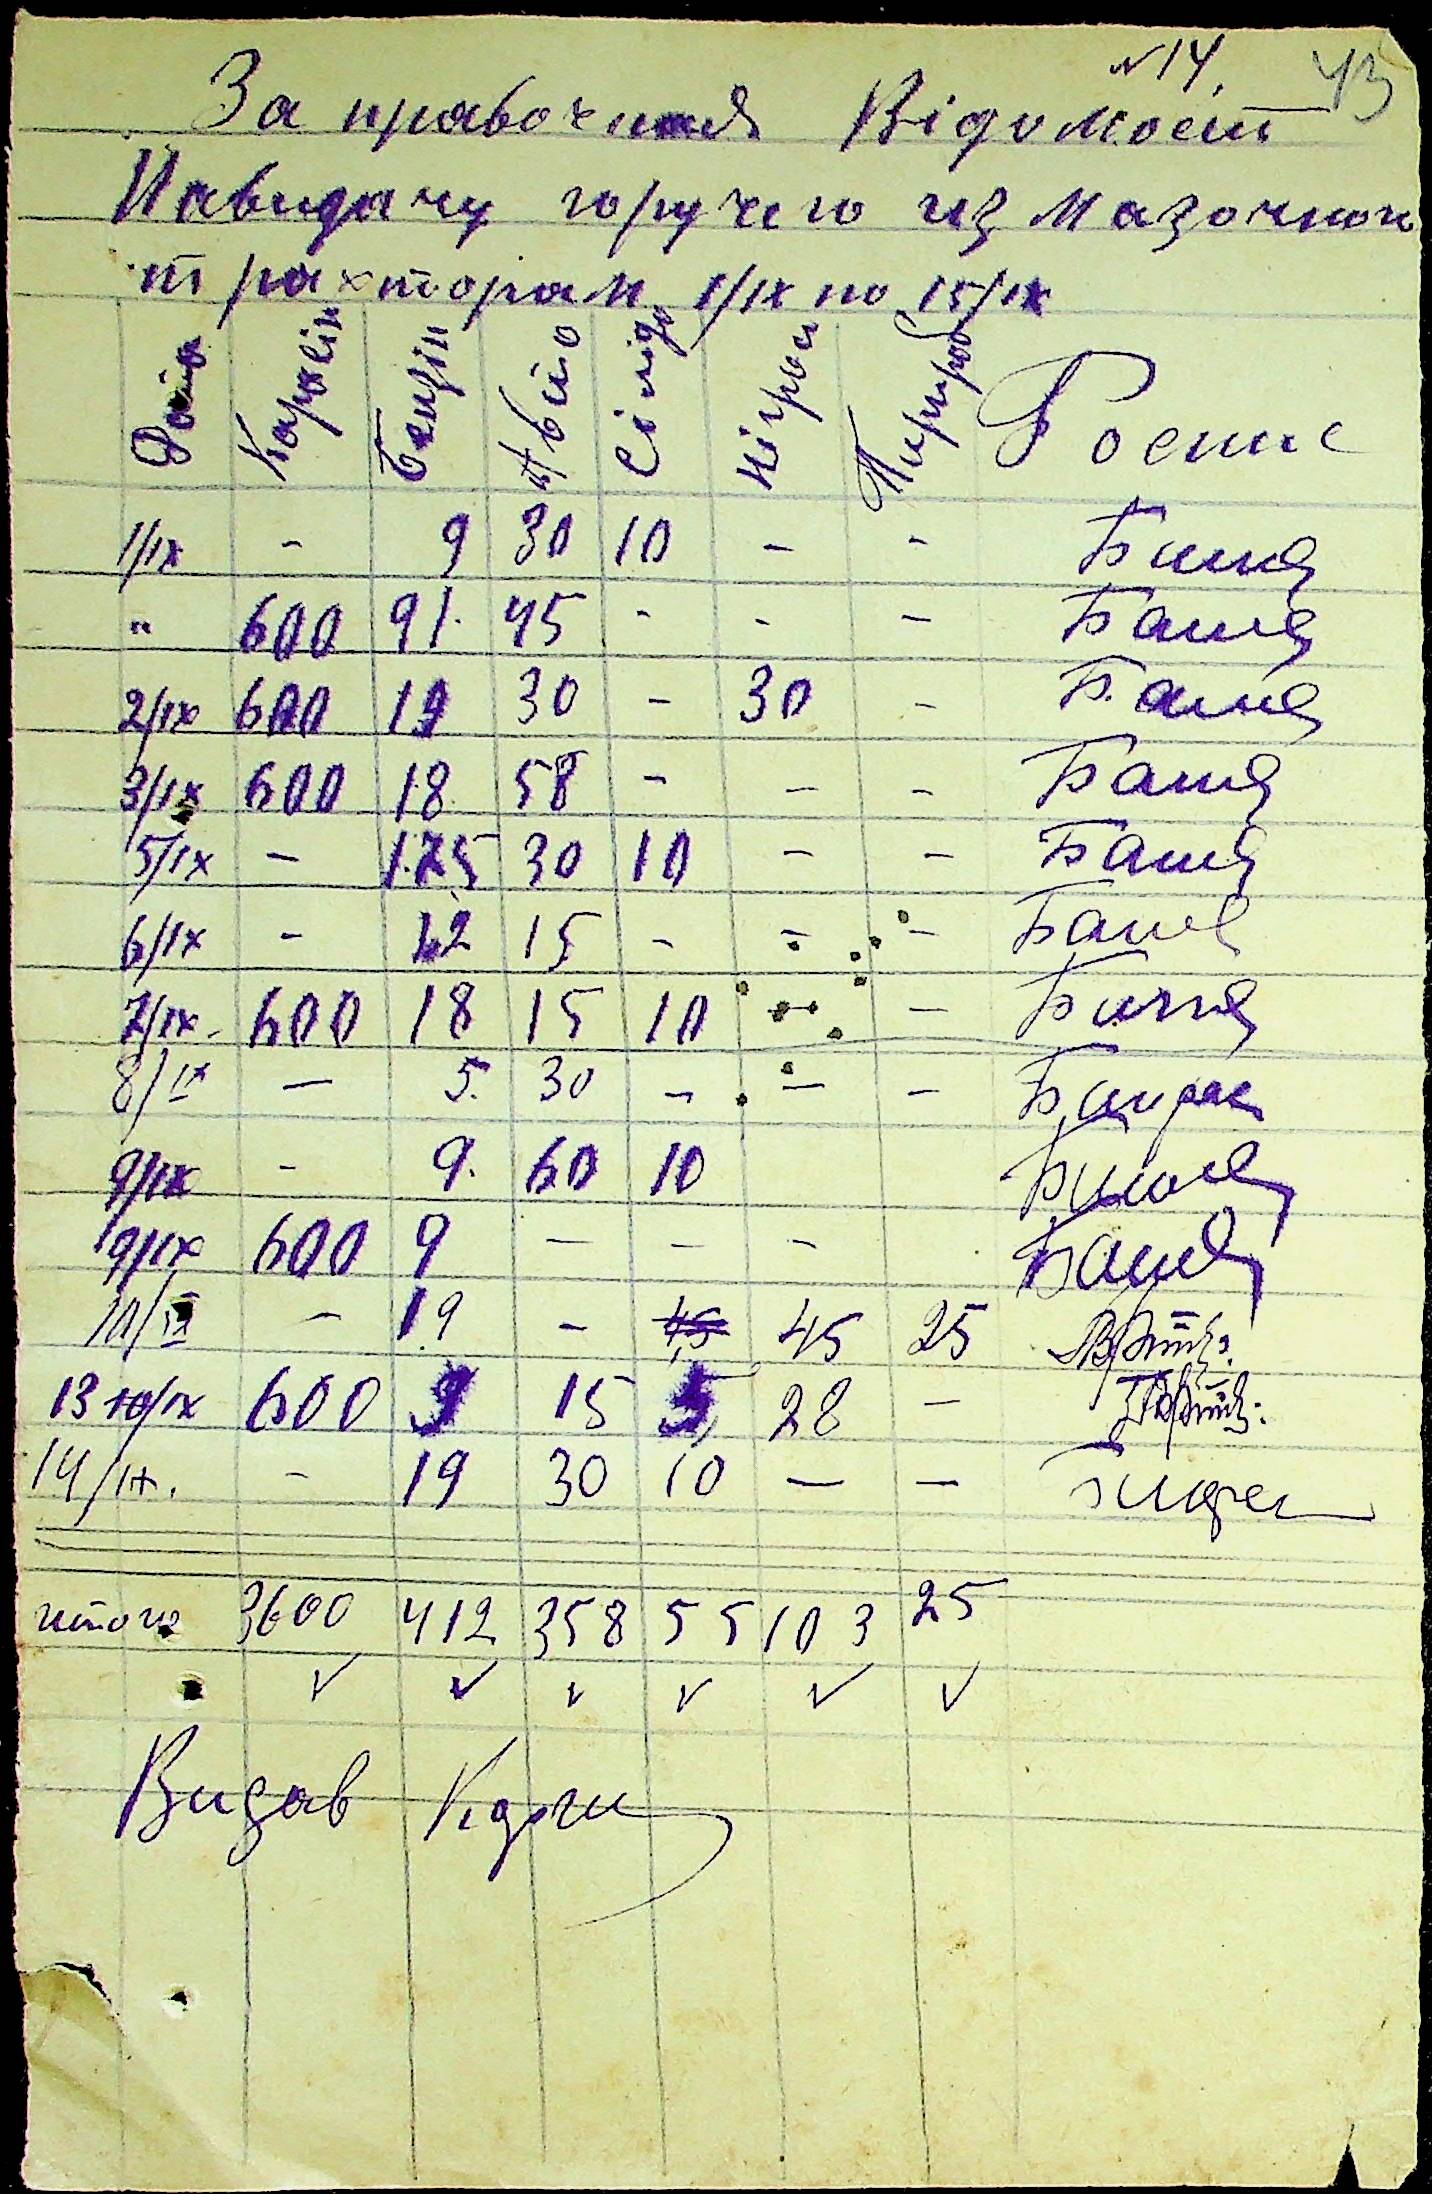 №14. 43
Заправочная Відомост
Навидачу горучего из мазочного
трахторам 1/IX по 15/IX
Дата Каросін Бензін Авто Сілідо Нігрол Роспис
1/IX - 9 30 10 - -
" 600 91. 45 - - - Башя
2/IX 600 19 30 - 30 - Башя
3/IX 600 18 58 - - - Башя
5/IX - 175 30 10 - - Башя
6/IX - 12 15 - - - Башя
7/IX. 600 18 15 10 - -
8/IX - 5. 30 - - -
9/IX - 9. 60 10
9/IX 600 9 - - - Башя
10/IX - 19 - 45 45 25
13 10/IX 600 9 15 5 28 -
14/IX. - 19 30 10 - -
итого 3600 412 358 55 103 25
Видав